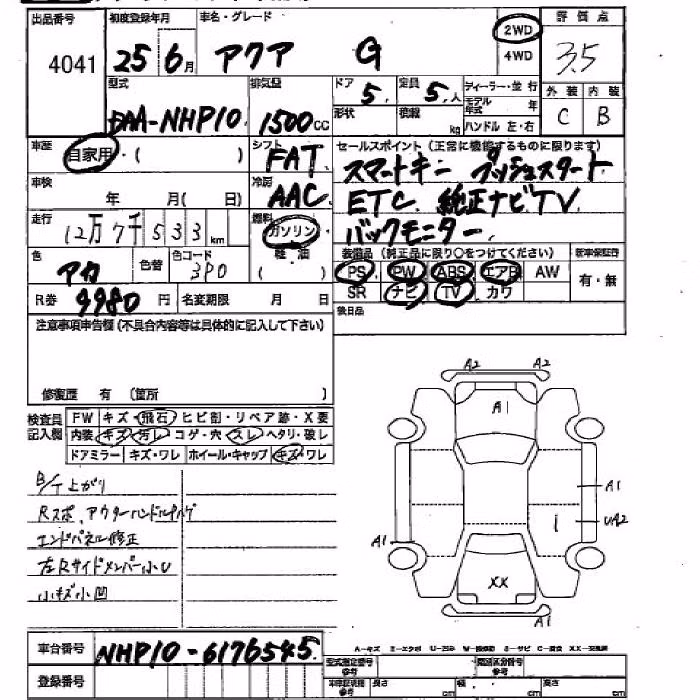 出品番号 初度登録年月 車名・グレード 2WD 評価点
4041 25年6月 アクア G 4WD 3.5
型式 排気量 ドア 定員 ディーラー・並行 外装 内装
DAA-NHP10 1500cc 5 5人 モデル年式 年 C B
形状 積載 kg ハンドル 左・右
車歴 自家用・( ) シフト FAT セールスポイント(正常に機能するものに限ります)
スマートキー プッシュスタート
車検 年 月( 日) 冷房 AAC ETC. 純正ナビTV
走行 12万7千533km 燃料 ガソリン バックモニター
軽油 ( )
色 アカ 色替 色コード 3P0 装備品(純正品に限り○をつけてください) 新車保証書
PS PW ABS エアB AW 有・無
R券 9980円 名変期限 月 日 SR ナビ TV カワ
注意事項申告欄(不具合内容等は具体的に記入して下さい) 後日品
修復歴 有 (箇所 )
検査員記入欄 FW キズ・飛石・ヒビ割・リペア跡・X要
内装 キズ・汚レ・コゲ・穴・スレ・ヘタリ・破レ
ドアミラー キズ・ワレ ホイール・キャップ キズ・ワレ
A2 A2
A1
B/T上がり
A1
Rスポ、アウターハンドル
UA2
エンドパネル修正
A1
左Rサイドメンバー小U
小キズ小凹
XX
A1
A-キズ E-エクボ U-凹み W-補修跡 S-サビ C-腐食 XX-交換済
車台番号 NHP10-6176545
型式指定番号 参考 類別区分番号 参考
登録番号 参考 長さ cm 幅 cm 高さ cm